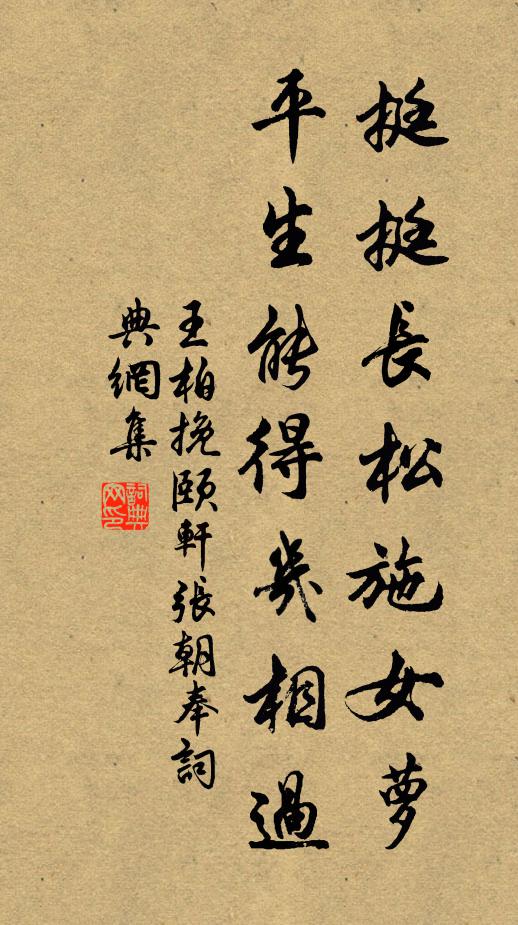 挺挺長松施女蘿
平生能得幾相過
王柏挽頤軒張朝奉詞
典網集
詞典网印